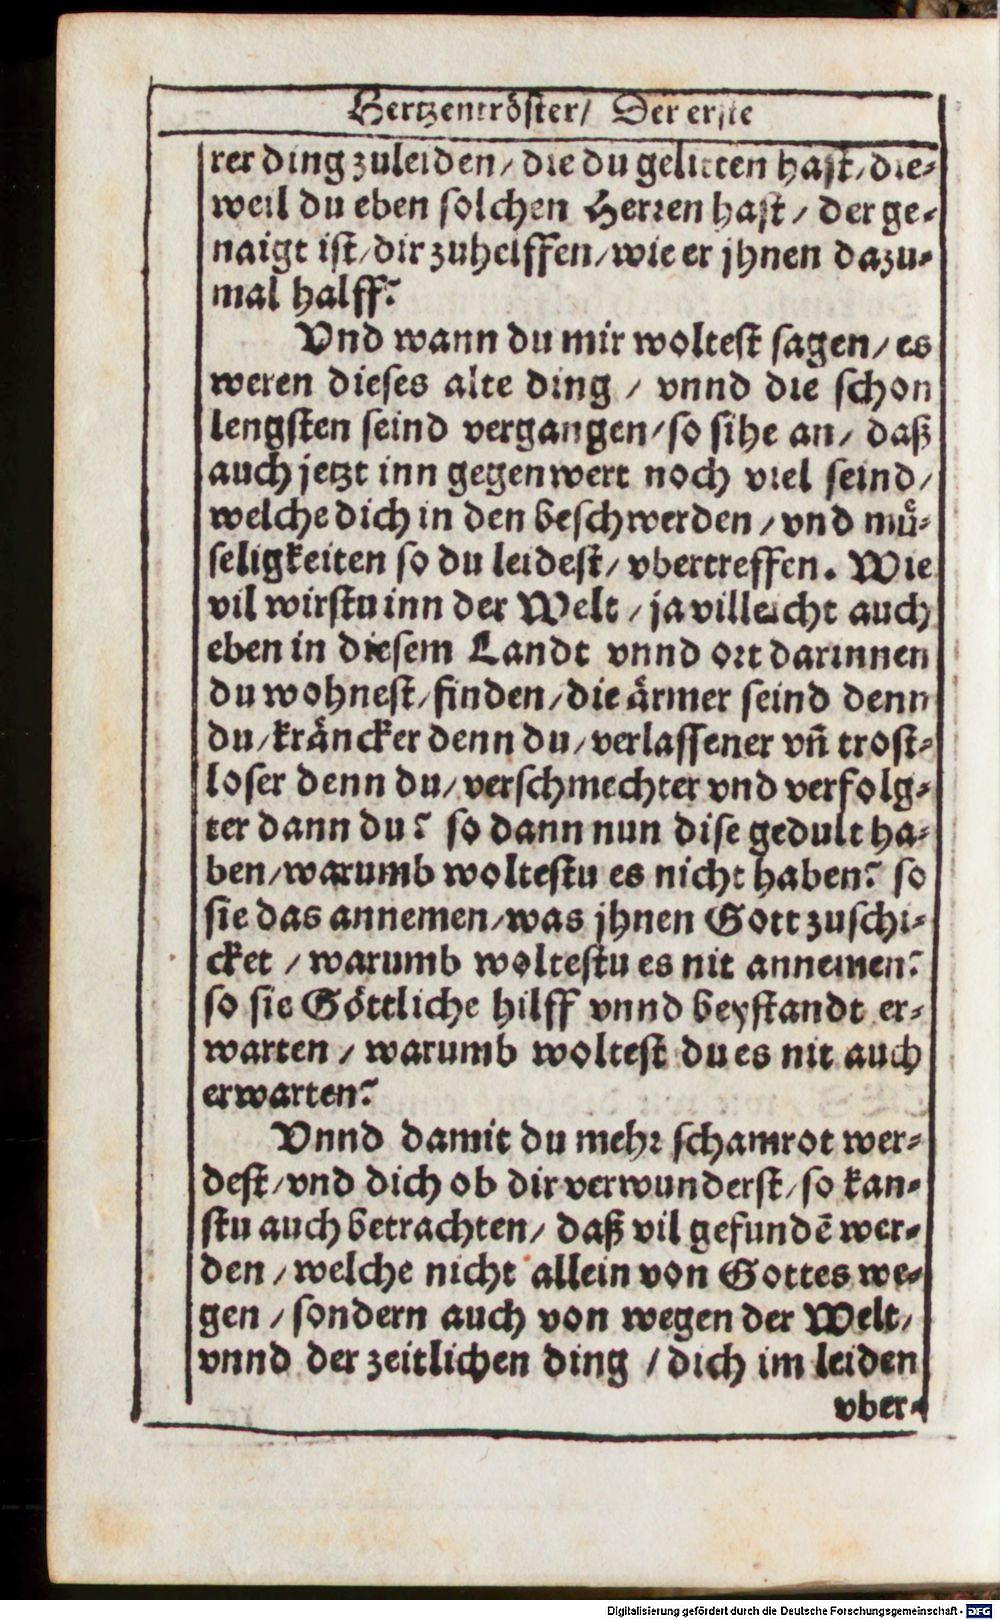 Hertzentröster/ Der erste
rer ding zuleiden/ die du gelitten hast/ die-
weil du eben solchen Herren hast/ der ge-
naigt ist/ dir zuhelffen/ wie er jhnen dazu-
mal halff?
Vnd wann du mir woltest sagen/ es
weren dieses alte ding / vnnd die schon
lengsten seind vergangen/ so sihe an/ daß
auch jetzt inn gegenwert noch viel seind/
welche dich in den beschwerden/ vnd muͤ-
seligkeiten so du leidest/ vbertreffen. Wie
vil wirstu inn der Welt/ ja villeicht auch
eben in diesem Landt vnnd ort darinnen
du wohnest/ finden/ die ärmer seind denn
du/ kräncker denn du/ verlassener vn̄ trost-
loser denn du/ verschmechter vnd verfolg-
ter dann du? so dann nun dise gedult ha-
ben/ warumb woltestu es nicht haben? so
sie das annemen/ was jhnen Gott zuschi-
cket / warumb woltestu es nit annemen?
so sie Göttliche hilff vnnd beystandt er-
warten / warumb woltest du es nit auch
erwarten?
Vnnd damit du mehr schamrot wer-
dest/ vnd dich ob dir verwunderst/ so kan-
stu auch betrachten/ daß vil gefundē wer-
den / welche nicht allein von Gottes we-
gen / sondern auch von wegen der Welt/
vnnd der zeitlichen ding / dich im leiden
vber-
Digitalisierung gefördert durch die Deutsche Forschungsgemeinschaft - DFG